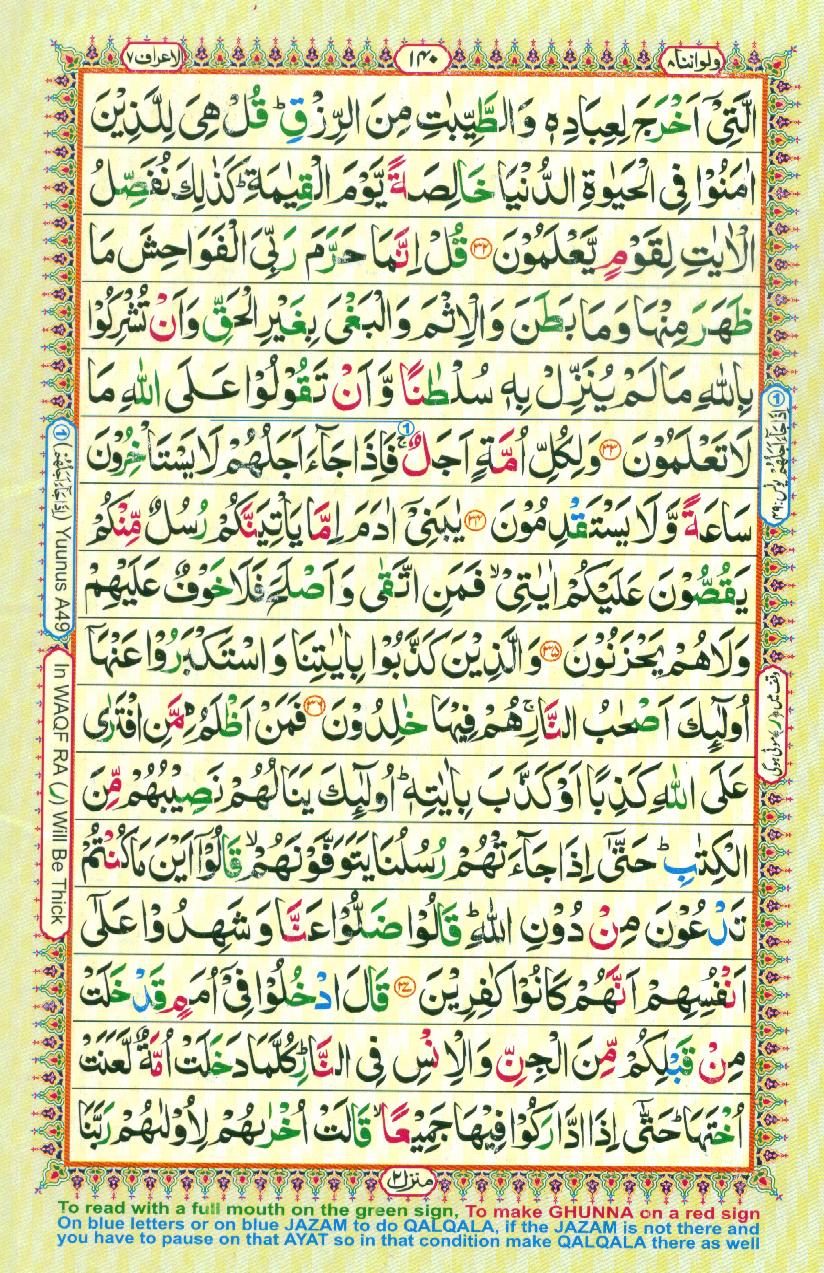 ولواننا ۸
۱۴۰
الاعراف ۷
الَّتِیْۤ اَخْرَجَ لِعِبَادِهٖ وَالطَّیِّبٰتِ مِنَ الرِّزْقِ ؕ قُلْ هِیَ لِلَّذِیْنَ
اٰمَنُوْا فِی الْحَیٰوةِ الدُّنْیَا خَالِصَةً یَّوْمَ الْقِیٰمَةِ ؕ كَذٰلِكَ نُفَصِّلُ
الْاٰیٰتِ لِقَوْمٍ یَّعْلَمُوْنَ ۳۲ قُلْ اِنَّمَا حَرَّمَ رَبِّیَ الْفَوَاحِشَ مَا
ظَهَرَ مِنْهَا وَمَا بَطَنَ وَالْاِثْمَ وَالْبَغْیَ بِغَیْرِ الْحَقِّ وَاَنْ تُشْرِكُوْا
بِاللّٰهِ مَا لَمْ یُنَزِّلْ بِهٖ سُلْطٰنًا وَّاَنْ تَقُوْلُوْا عَلَی اللّٰهِ مَا
لَا تَعْلَمُوْنَ ۳۳ وَلِكُلِّ اُمَّةٍ اَجَلٌ ۚ فَاِذَا جَآءَ اَجَلُهُمْ لَا یَسْتَاْخِرُوْنَ
سَاعَةً وَّلَا یَسْتَقْدِمُوْنَ ۳۴ یٰبَنِیْۤ اٰدَمَ اِمَّا یَاْتِیَنَّكُمْ رُسُلٌ مِّنْكُمْ
یَقُصُّوْنَ عَلَیْكُمْ اٰیٰتِیْ ۙ فَمَنِ اتَّقٰی وَاَصْلَحَ فَلَا خَوْفٌ عَلَیْهِمْ
وَلَا هُمْ یَحْزَنُوْنَ ۳۵ وَالَّذِیْنَ كَذَّبُوْا بِاٰیٰتِنَا وَاسْتَكْبَرُوْا عَنْهَاۤ
اُولٰٓئِكَ اَصْحٰبُ النَّارِ ۚ هُمْ فِیْهَا خٰلِدُوْنَ ۳۶ فَمَنْ اَظْلَمُ مِمَّنِ افْتَرٰی
عَلَی اللّٰهِ كَذِبًا اَوْ كَذَّبَ بِاٰیٰتِهٖ ؕ اُولٰٓئِكَ یَنَالُهُمْ نَصِیْبُهُمْ مِّنَ
الْكِتٰبِ ؕ حَتّٰۤی اِذَا جَآءَتْهُمْ رُسُلُنَا یَتَوَفَّوْنَهُمْ ۙ قَالُوْۤا اَیْنَ مَا كُنْتُمْ
تَدْعُوْنَ مِنْ دُوْنِ اللّٰهِ ؕ قَالُوْا ضَلُّوْا عَنَّا وَشَهِدُوْا عَلٰۤی
اَنْفُسِهِمْ اَنَّهُمْ كَانُوْا كٰفِرِیْنَ ۳۷ قَالَ ادْخُلُوْا فِیْۤ اُمَمٍ قَدْ خَلَتْ
مِنْ قَبْلِكُمْ مِّنَ الْجِنِّ وَالْاِنْسِ فِی النَّارِ ؕ كُلَّمَا دَخَلَتْ اُمَّةٌ لَّعَنَتْ
اُخْتَهَا ؕ حَتّٰۤی اِذَا ادَّارَكُوْا فِیْهَا جَمِیْعًا ۙ قَالَتْ اُخْرٰىهُمْ لِاُوْلٰىهُمْ رَبَّنَا
منزل ۲
① اِذَا جَآءَ اَجَلُهُمْ یونس : ۴۹
① (اِذَا جَآءَ اَجَلُهُمْ) Yuunus A49
In WAQF RA (ر) Will Be Thick
To read with a full mouth on the green sign, To make GHUNNA on a red sign
On blue letters or on blue JAZAM to do QALQALA, if the JAZAM is not there and
you have to pause on that AYAT so in that condition make QALQALA there as well